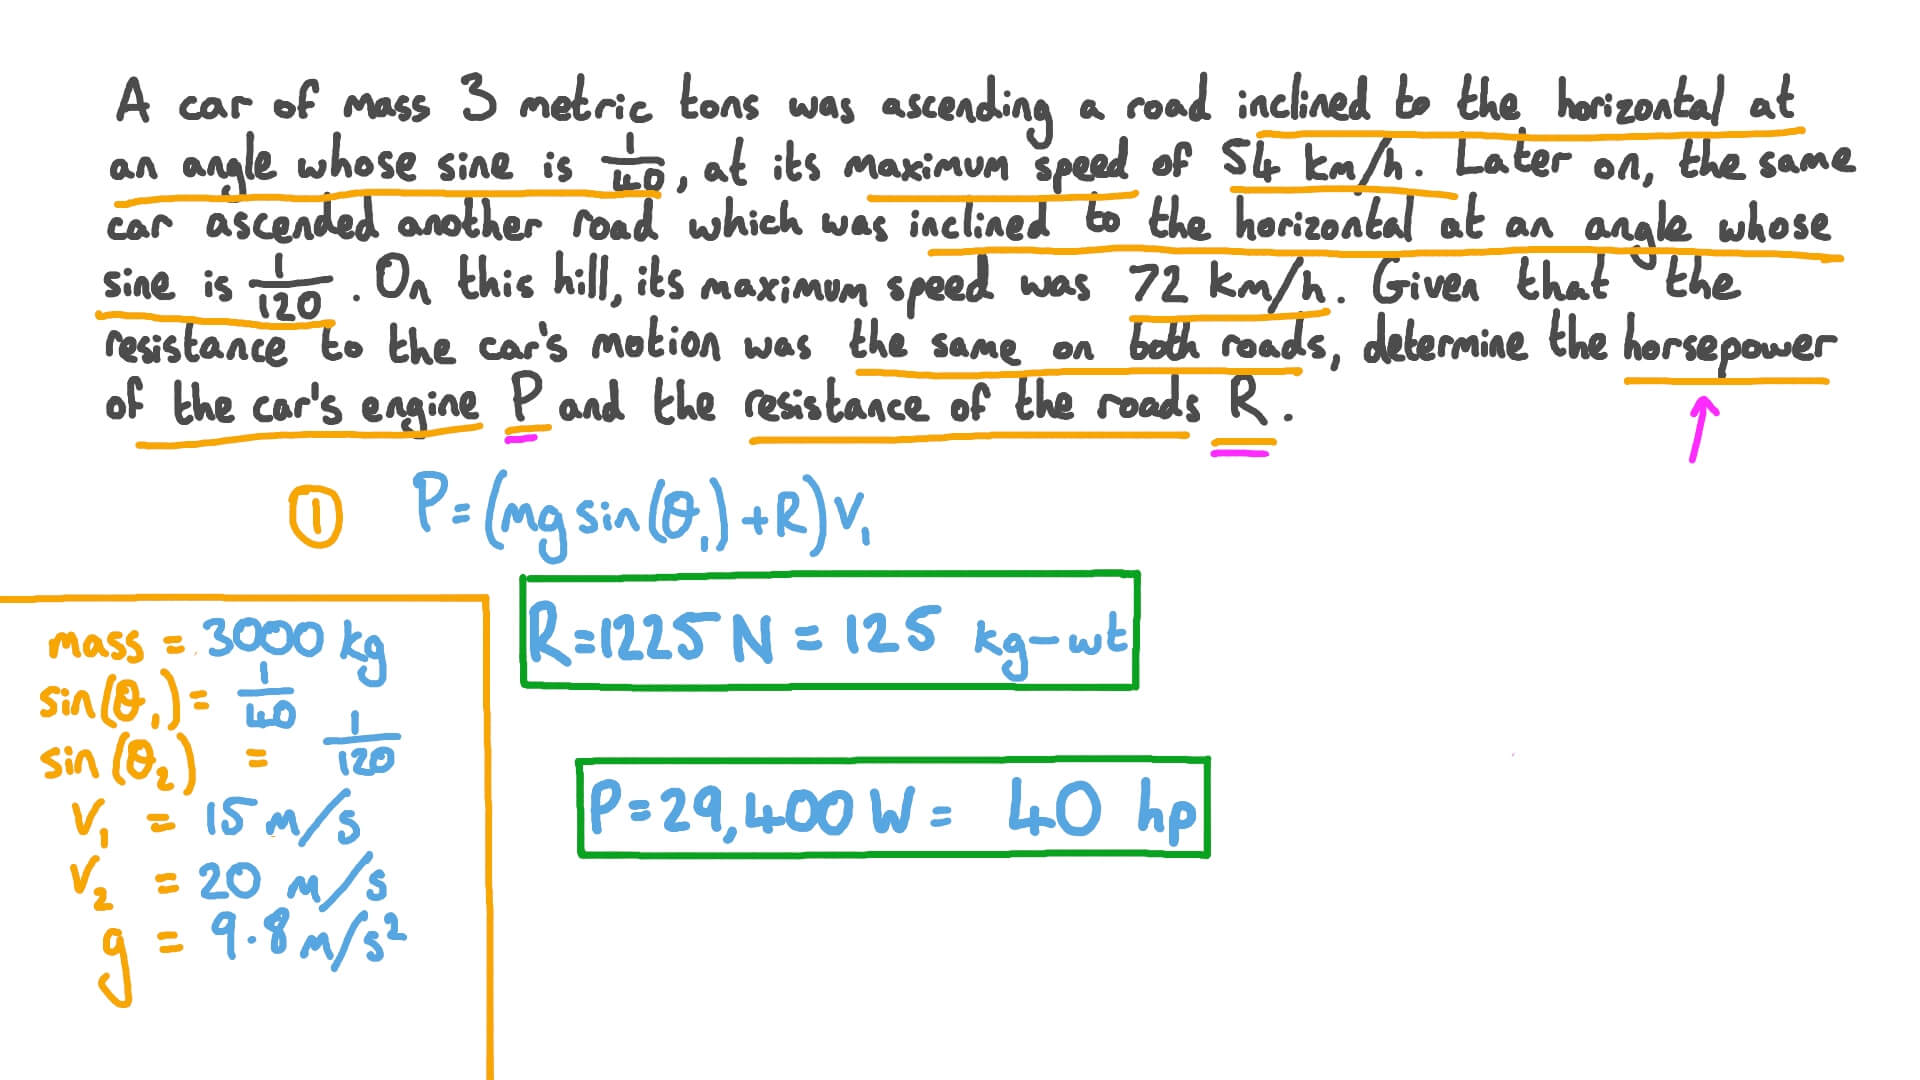 A car of mass 3 metric tons was ascending a road inclined to the horizontal at
an angle whose sine is 1/40, at its maximum speed of 54 km/h. Later on, the same
car ascended another road which was inclined to the horizontal at an angle whose
sine is 1/120. On this hill, its maximum speed was 72 km/h. Given that the
resistance to the car's motion was the same on both roads, determine the horsepower
of the car's engine P and the resistance of the roads R.
① P=(mg sin(θ₁)+R)V₁
mass = 3000 kg
sin(θ₁)= 1/40
sin(θ₂) = 1/120
V₁ = 15 m/s
V₂ = 20 m/s
g = 9.8 m/s²
R=1225 N = 125 kg-wt
P=29,400 W = 40 hp